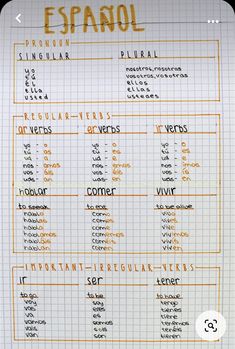 ESPAÑOL
PRONOUN
SINGULAR PLURAL
yo nosotros, nosotras
tú vosotros, vosotras
él ellos
ella ellas
usted ustedes
REGULAR-VERBS
ar verbs er verbs ir verbs
yo - o yo - o yo - o
tú - as tú - es tú - es
ud - a ud - e ud - e
nos - amos nos - emos nos - imos
vos - áis vos - éis vos - ís
uds - an uds - en uds - en
hablar comer vivir
to speak to eat to be alive
hablo como vivo
hablas comes vives
habla come vive
hablamos comemos vivimos
habláis coméis vivís
hablan comen viven
IMPORTANT-IRREGULAR-VERBS
ir ser tener
to go to be to have
voy soy tengo
vas eres tienes
va es tiene
vamos somos tenemos
vais sois tenéis
van son tienen